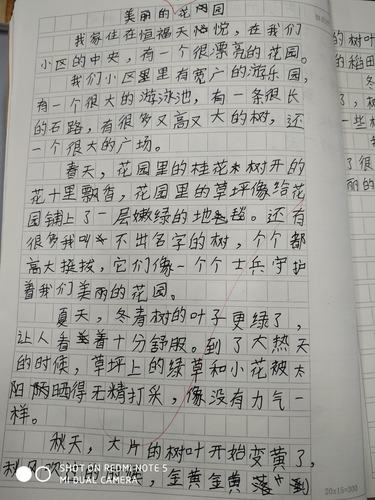 美丽的花园
我家住在恒福天悦悦，在我们
小区的中央，有一个很漂亮的花园。
我们小区里里有宽广的游乐园，
有一个很大的游泳池，有一条很长
的石路，有很多又高又大的树，还
一个很大的广场。
春天，花园里的桂花树开的
花十里飘香，花园里的草坪像给花
园铺上了一层嫩绿的地毯。还有
很多我叫不出名字的树，个个都
高大挺拔，它们像一个个士兵守护
着我们美丽的花园。
夏天，冬青树的叶子更绿了，
让人看着十分舒服。到了大热天
的时候，草坪上的绿草和小花被太
阳晒得无精打采，像没有力气一
样。
秋天，大片的树叶开始变黄了，
金黄金黄落到
的树叶
的稻田
了，树
一些树
了很
丽的
SHOT ON REDMI NOTE 5
MI DUAL CAMERA
20×15=300